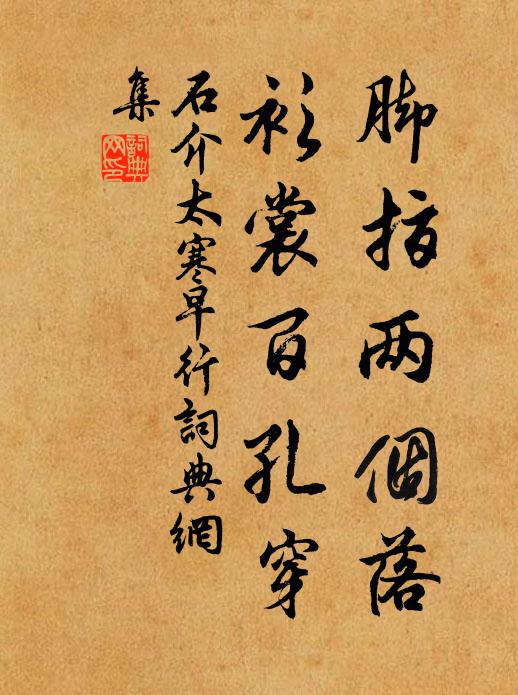 脚指两個落
衫裳百孔穿
石介太寒早行詞典網
集
詞典
网印